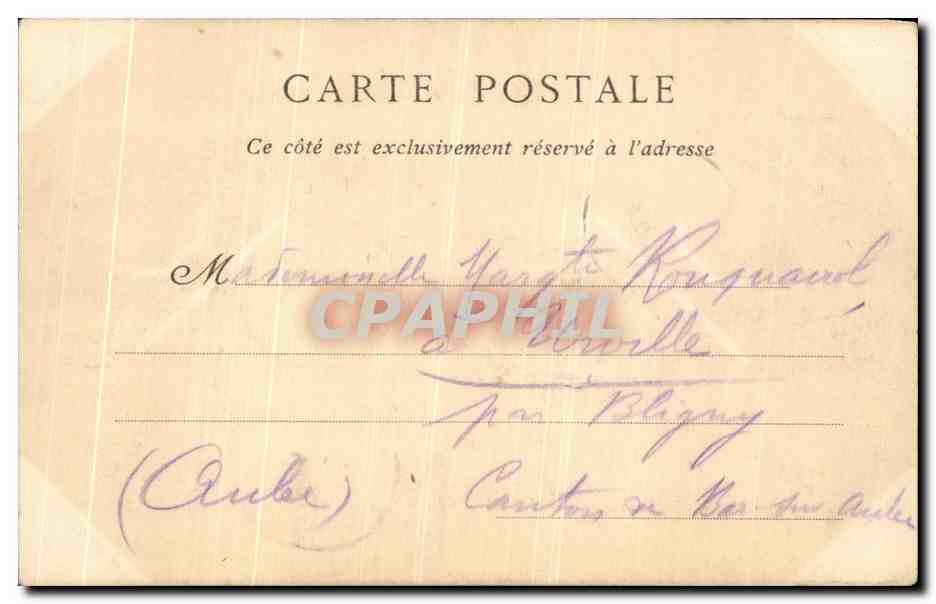 CARTE POSTALE
Ce côté est exclusivement réservé à l'adresse
Mademoiselle Margte Rouquairol
CPAPHIL
à Urville
par Bligny
(Aube) Canton de Bar-sur-Aube